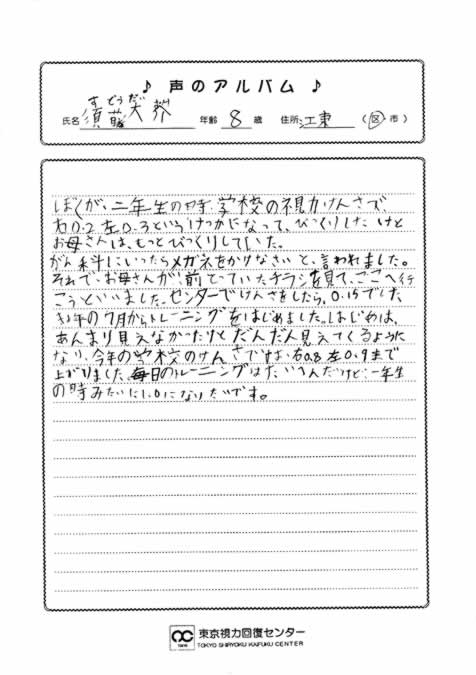 ♪ 声のアルバム ♪
すどうだ
氏名 須藤大 年齢 8 歳 住所 江東 (区・市)
ぼくが、二年生の時、学校の視力けんさで
右0.2左0.3というけっかになって、びっくりしたけど
お母さんは、もっとびっくりしていた。
がん科にいったらメガネをかけなさいと、言われました。
それで、お母さんが前とっていたチラシを見て、ここへ行
こうといいました。センターでけんさをしたら、0.15でした
の7月からトレーニングをはじめました。はじめは、
あんまり見えなかったけどだんだん見えてくるように
なり、今年の学校のけんさでは、右0.8左0.9まで
上がりました。毎日のトレーニングはたいへんだけど、一年生
の時みたいに1.0になりたいです。
東京視力回復センター
TOKYO SHIRYOKU KAIFUKU CENTER